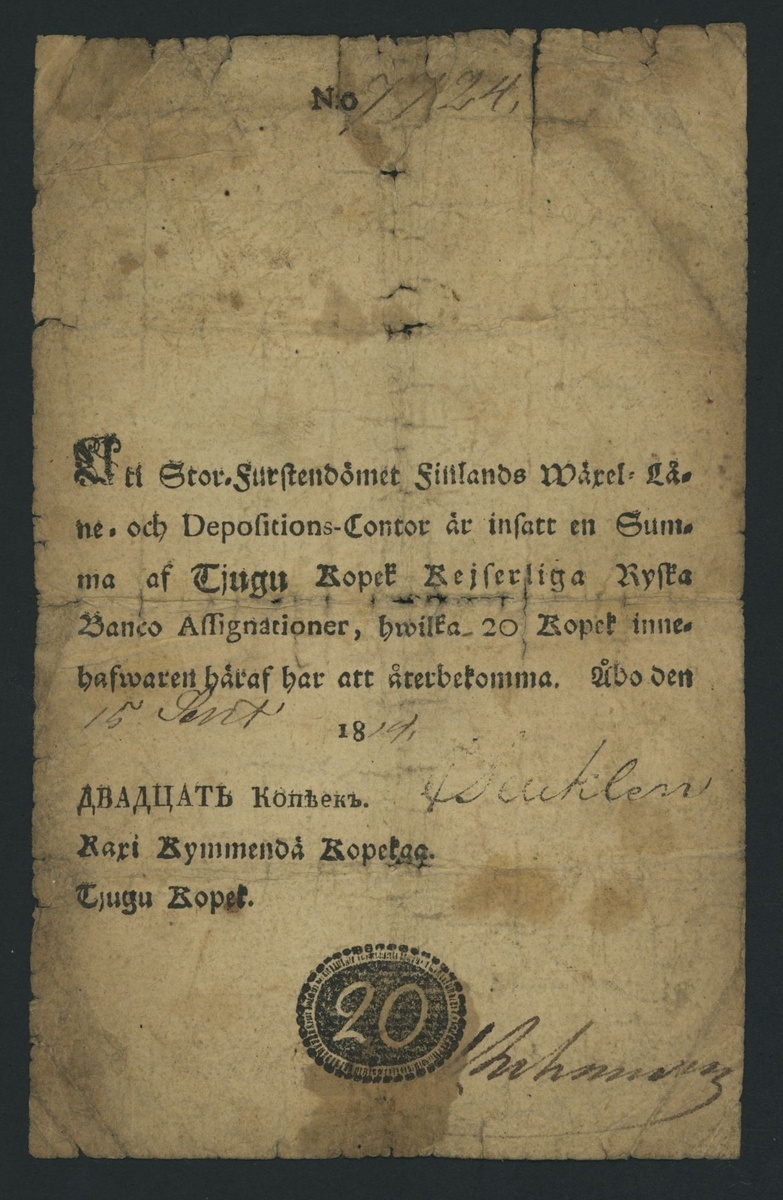 No 7724.
Uti Stor-Furstendömet Finlands Wäxel- Lå-
ne- och Depositions-Contor är insatt en Sum-
ma af Tjugu Kopek Kejserliga Ryska
Banco Assignationer, hwilka 20 Kopek inne-
hafwaren häraf har att återbekomma. Åbo den
15 Sept 1819.
ДВАДЦАТЬ Копѣекъ.
Kaxi Kymmendä Kopekaa.
Tjugu Kopek.
20